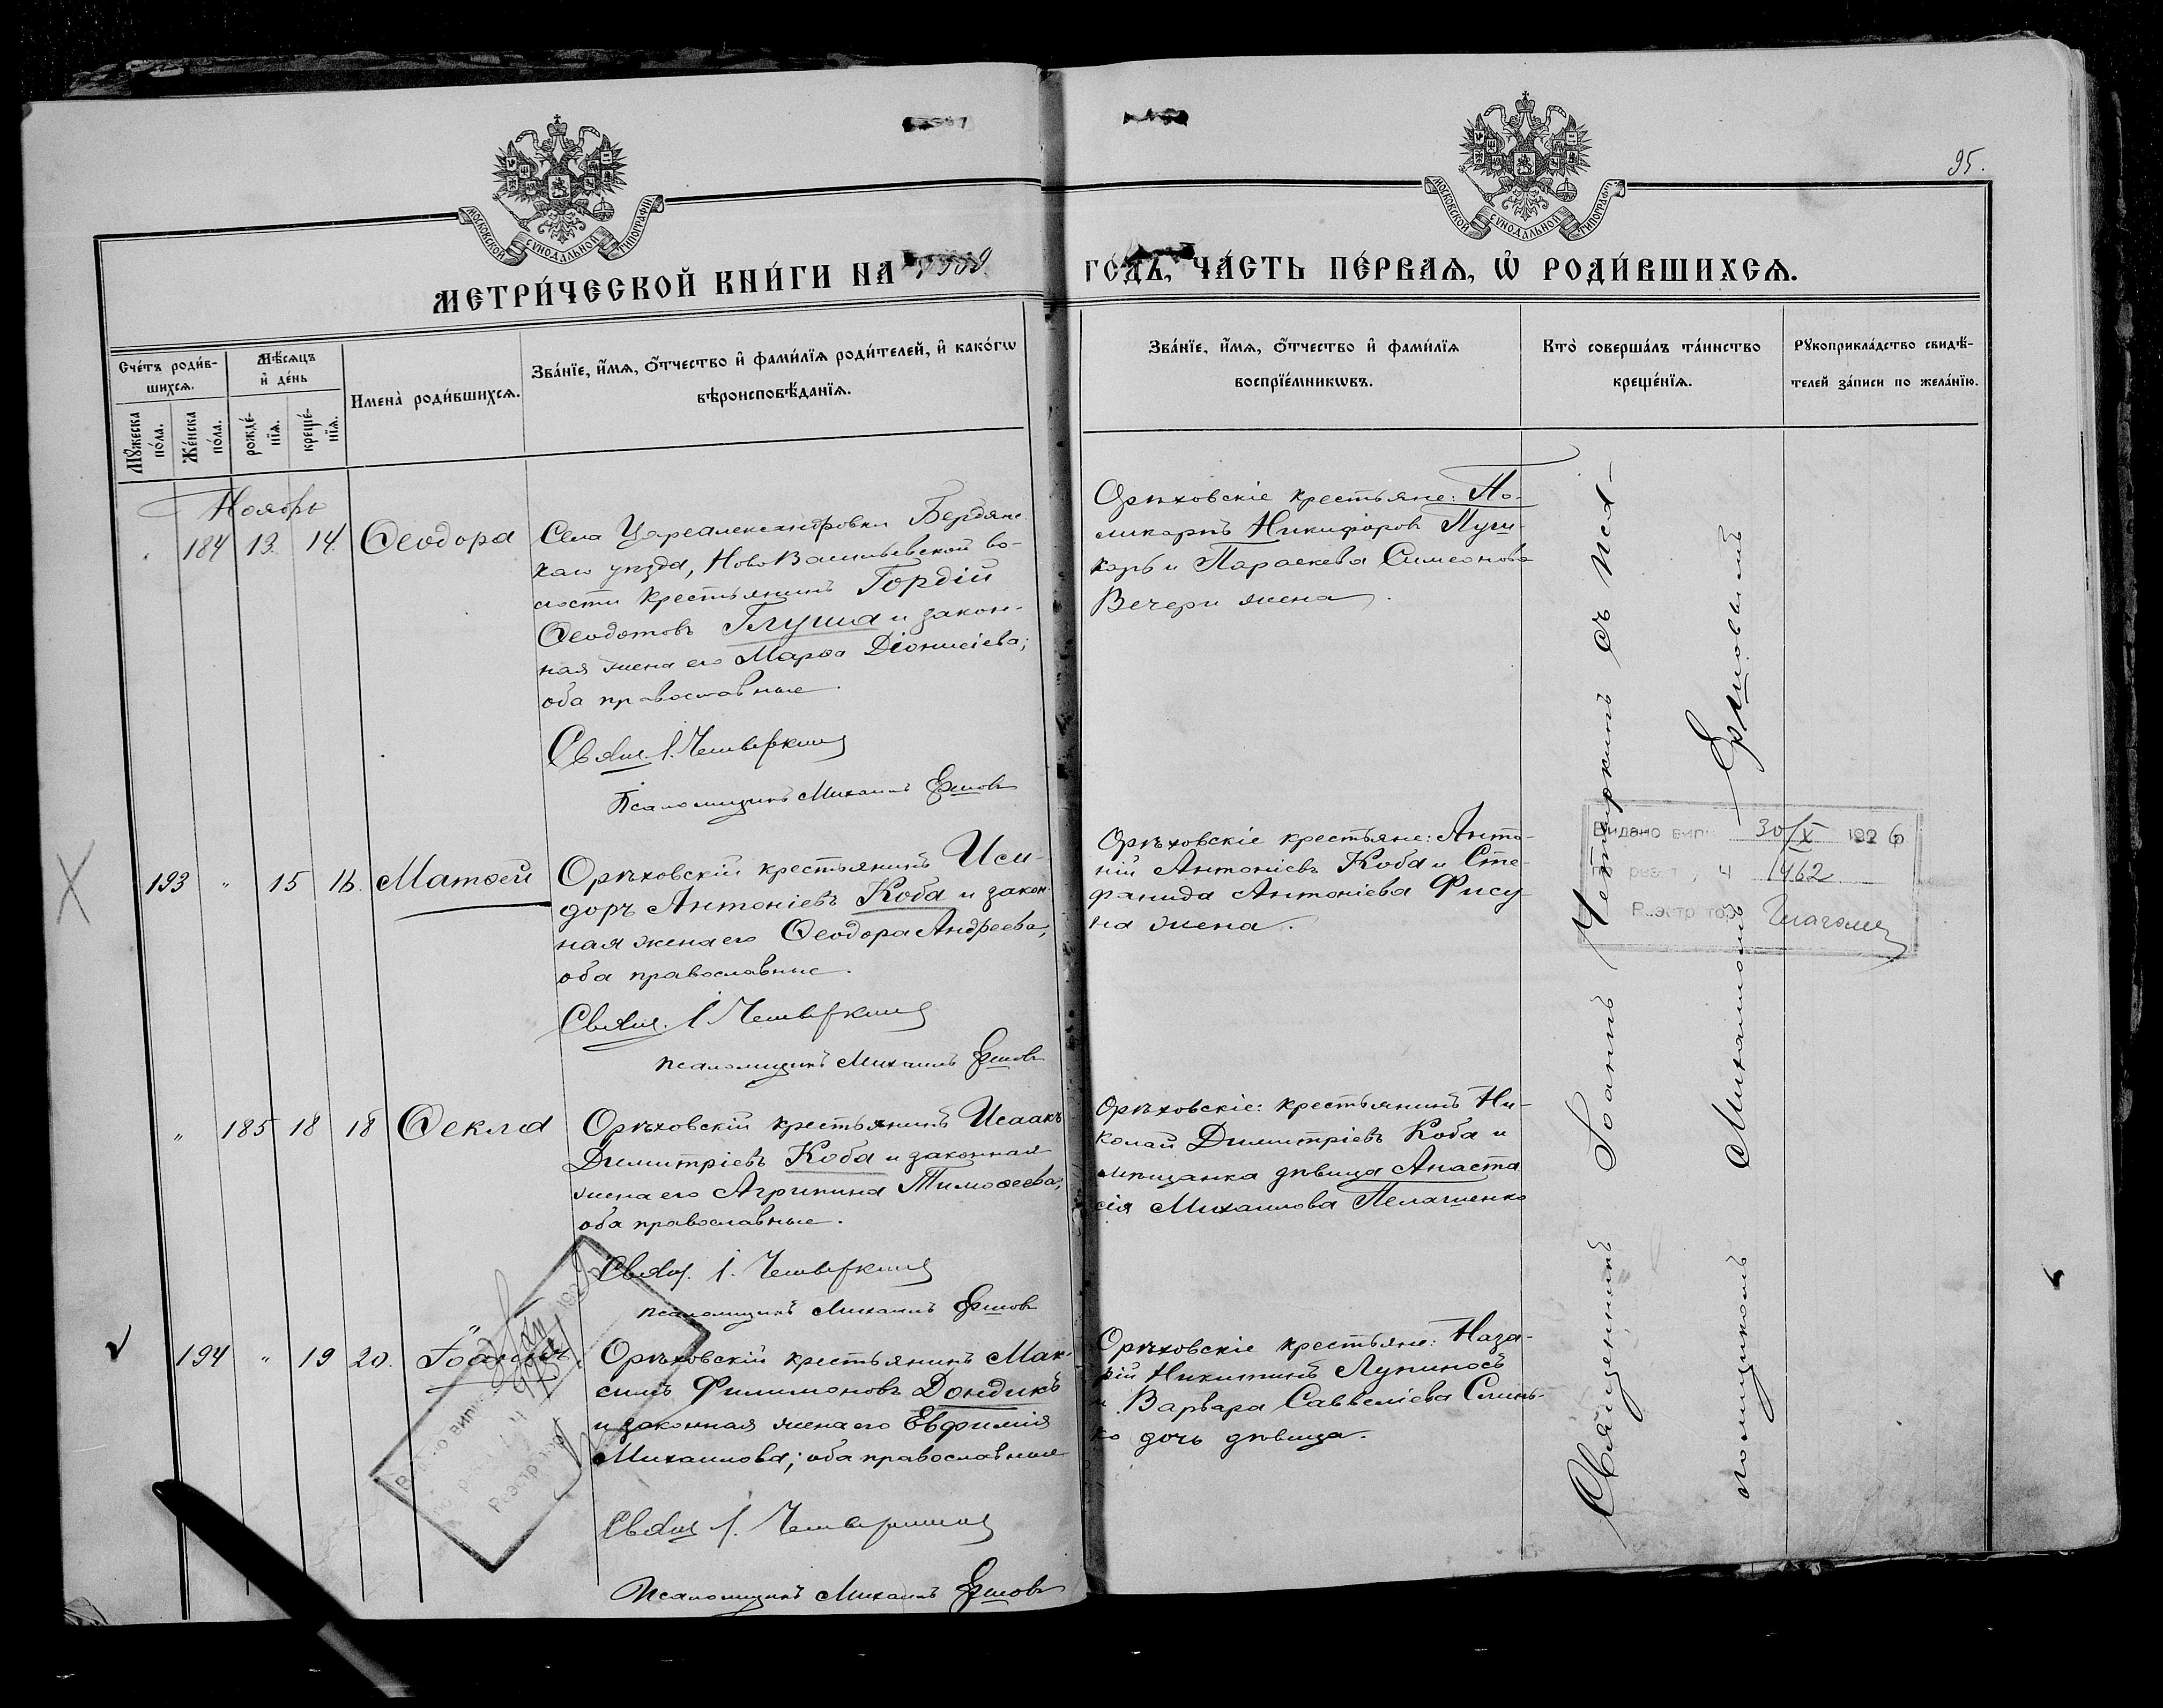 95.
МОСКОВСКОЙ СУНОДАЛЬНОЙ ТИПОГРАФІИ
МОСКОВСКОЙ СУНОДАЛЬНОЙ ТИПОГРАФІИ
МЕТРИ́ЧЕСКОЙ КНИ́ГИ НА
ГО́ДЪ, ЧА́СТЬ ПЕ́РВАѦ, Ѡ҆ РОДИ́ВШИХСѦ.
Сче́тъ роди́в-
шихсѧ.
Мꙋ́жеска по́ла.
Же́нска по́ла.
Мѣ́сѧцъ
и҆ де́нь
рожде́-
нїѧ.
креще́-
нїѧ.
Имена̀ роди́вшихсѧ.
Зва́нїе, и҆́мѧ, ѻ҆́тчество и҆ фами́лїѧ роди́телей, и҆ како́гѡ
вѣроисповѣ́данїѧ.
Зва́нїе, и҆́мѧ, ѻ҆́тчество и҆ фами́лїѧ
воспрїе́мникѡвъ.
Кто̀ соверша́лъ та́инство
креще́нїѧ.
Рꙋкоприкла́дство свидѣ́-
телей за́писи по жела́нїю.
Ноябрь
184 13 14 Ѳеодора
Села Цареалександровки Бердянс
каго уѣзда, НовоВасильевской во-
лости крестьянинъ Гордій
Ѳеодотовъ Глуша и закон-
ная жена его Марѳа Діонисіева;
оба православные.
Свящ. І. Четверкинъ
Псаломщикъ Михаилъ Ершовъ
Орѣховскіе крестьяне: По-
ликарпъ Никифоровъ Пуш-
карь и Параскева Симеонова
Вечери жена.
193 " 15 16 Матѳей
Орѣховскій крестьянинъ Иси-
доръ Антоніевъ Коба и закон-
ная жена его Ѳеодора Андреева;
оба православные.
Свящ. І Четверкинъ
псаломщикъ Михаилъ Ершовъ
Орѣховскіе крестьяне: Анто-
ній Антоніевъ Коба и Сте-
фанида Антоніева Фису-
на жена.
" 185 18 18 Ѳекла
Орѣховскій крестьянинъ Исаакъ
Димитріевъ Коба и законная
жена его Агрипина Тимоѳеева;
оба православные.
Свящ. І. Четверкинъ
псаломщикъ Михаилъ Ершовъ
Орѣховскіе: крестьянинъ Ни-
колай Димитріевъ Коба и
мѣщанка дѣвица Анаста
сія Михаилова Пелашенко
194 " 19 20. Іоаннъ
Орѣховскій крестьянинъ Мак-
симъ Филимоновъ Дондикъ
и законная жена его Евфимія
Михаилова; оба православные
Свящ І. Четверкинъ
Псаломщикъ Михаилъ Ершовъ
Орѣховскіе крестьяне: Наза-
рій Никитинъ Лупиносъ
и Варвара Саввеліева Слинь-
ко дочь дѣвица.
Священникъ Іоаннъ Четверкинъ съ пса-
ломщикомъ Михаиломъ Ершовымъ
Видано вип 30/X 1926
ч 1462
Реэстратор
Реэстратор